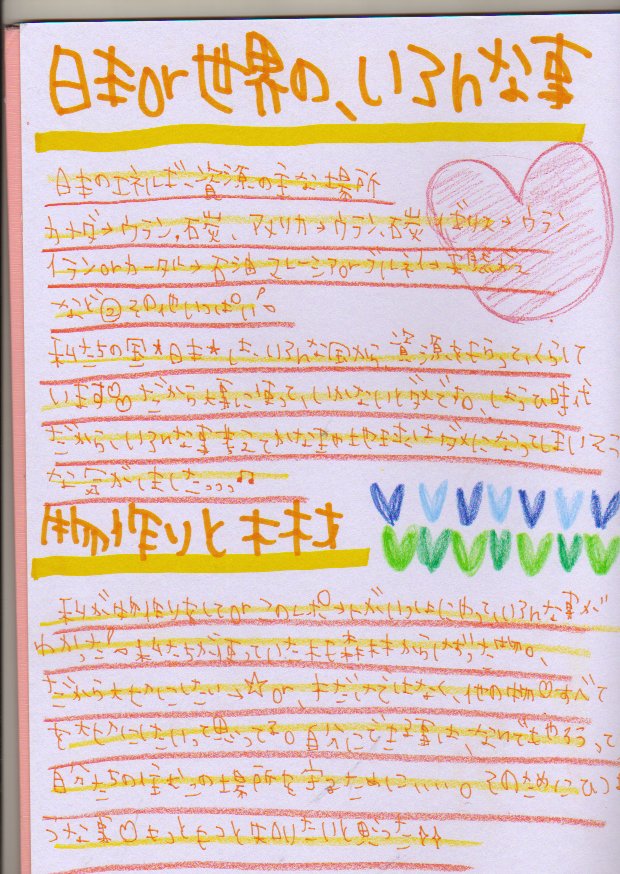 日本or世界の、いろんな事
日本のエネルギー資源の主な場所
カナダ→ウラン,石炭、アメリカ→ウラン、石炭 イギリス→ウラン
イランorカタール→石油 マレーシアorブルネイ→天然ガス
など② その他いっぱい!
私たちの国★日本★は、いろんな国から資源をもらって、くらして
います だから大事に使って、いかないとダメです。しょうひ時代
だからいろいろな事考えてかな 地球はダメになってしまいそう
な気がしましたっっっ♫
物作りと木材
私が物作りをしてorこのレポートがいっしょにやって、いろんな事が
わかった!〜私たちが使っていた木も森林からけずった物。
だから大切にしたい☆or、木だけではなく、他の物♡すべて
を大切にしたいって思ってる。自分にできる事は、なんでもやろうって
自分たちの住むこの場所を守るために、、、。そのためにひつ
つな事♡もっともっと知りたいと思った